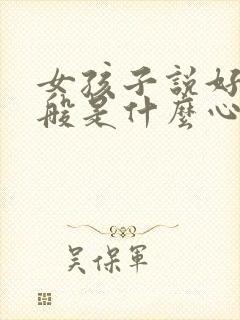 女孩子説好
般是什麼心
吴保軍